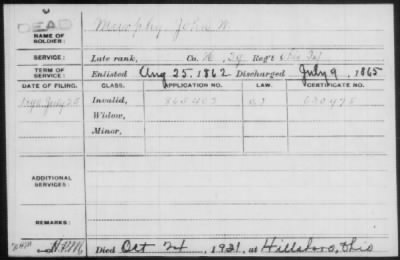 DEAD
NAME OF SOLDIER: Murphy John W.
SERVICE: Late rank, Co. H, 24 Reg't Ohio Inf
TERM OF SERVICE: Enlisted Aug 25, 1862 Discharged July 9, 1865
DATE OF FILING. CLASS. APPLICATION NO. LAW. CERTIFICATE NO.
1890 July 28 Invalid,
Widow,
Minor,
ADDITIONAL SERVICES:
REMARKS:
Died Oct 24, 1921, at Hillsboro, Ohio